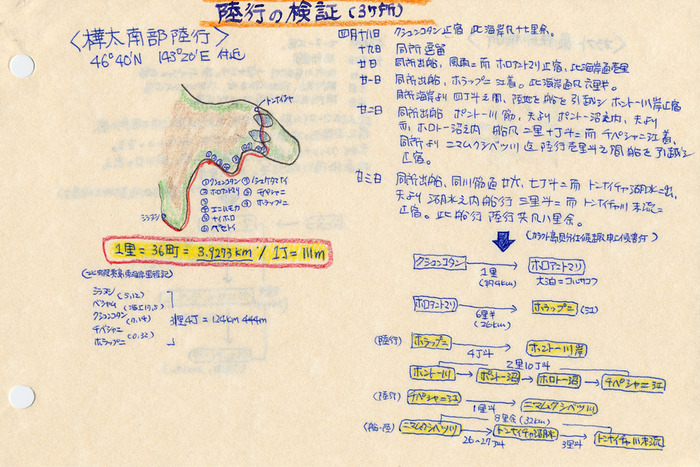 陸行の検証(3ヶ所)
〈樺太南部陸行〉
46°40'N 143°20'E 付近
トンナイチャ
①クシュンコタン
②ホロアントマリ
チペシャニ
ホラップニ
エンルモカ
ナイホロ
ベシトム
シラヌシ
1里=36町=3.9273km/1丁=111m
シラヌシ(5,12)
ベシャム(海上17,5)
クシュンコタン(0.14)
チペシャニ(0.32)
ホラップニ
31里4丁=124km 444m
四月十八日 クシュンコタン止宿 此海岸凡十七里余。
十九日 同所逗留
廿日 同所出船、風雨ニ而ホロアントマリ止宿、此海岸通壱里
廿一日 同所出船、ホラップニ江着。此海岸通凡六里半。
同所海岸より四丁斗之間、陸地を船を引越シ ポントー川岸止宿
廿二日 同所出船 ポントー川筋、夫より ポントー沼之内、夫より
而、ホロトー沼之内 船凡二里十丁斗ニ而 チペシャニ江着、
同所より ニマムクシベツ川 迄 陸行壱里斗之間船を引越シ
止宿。
廿三日 同所出船、同川筋通廿六、七丁斗ニ而 トンナイチャ湖水ニ出、
夫より 湖水之内船行 三里斗ニ而 トンナイチャ川末流ニ
止宿。此船行 陸行共凡八里余。
クシュンコタン → ホロアントマリ
1里
(約4km)
大泊=コルサコフ
ホロアントマリ → ホラップニ(江)
6里半
(26km)
(陸行) ホラップニ → ホントー川岸
4丁斗
2里10丁斗
ホントー川 → ポントー沼 → ホロトー沼 → チペシャニ江
(陸行) チペシャニ江 → ニマムクシベツ川
1里斗
8里余(32km)
(船・陸) ニマムクシベツ川 → トンナイチャ湖水 → トンナイチャ川末流
26~27丁 3里斗